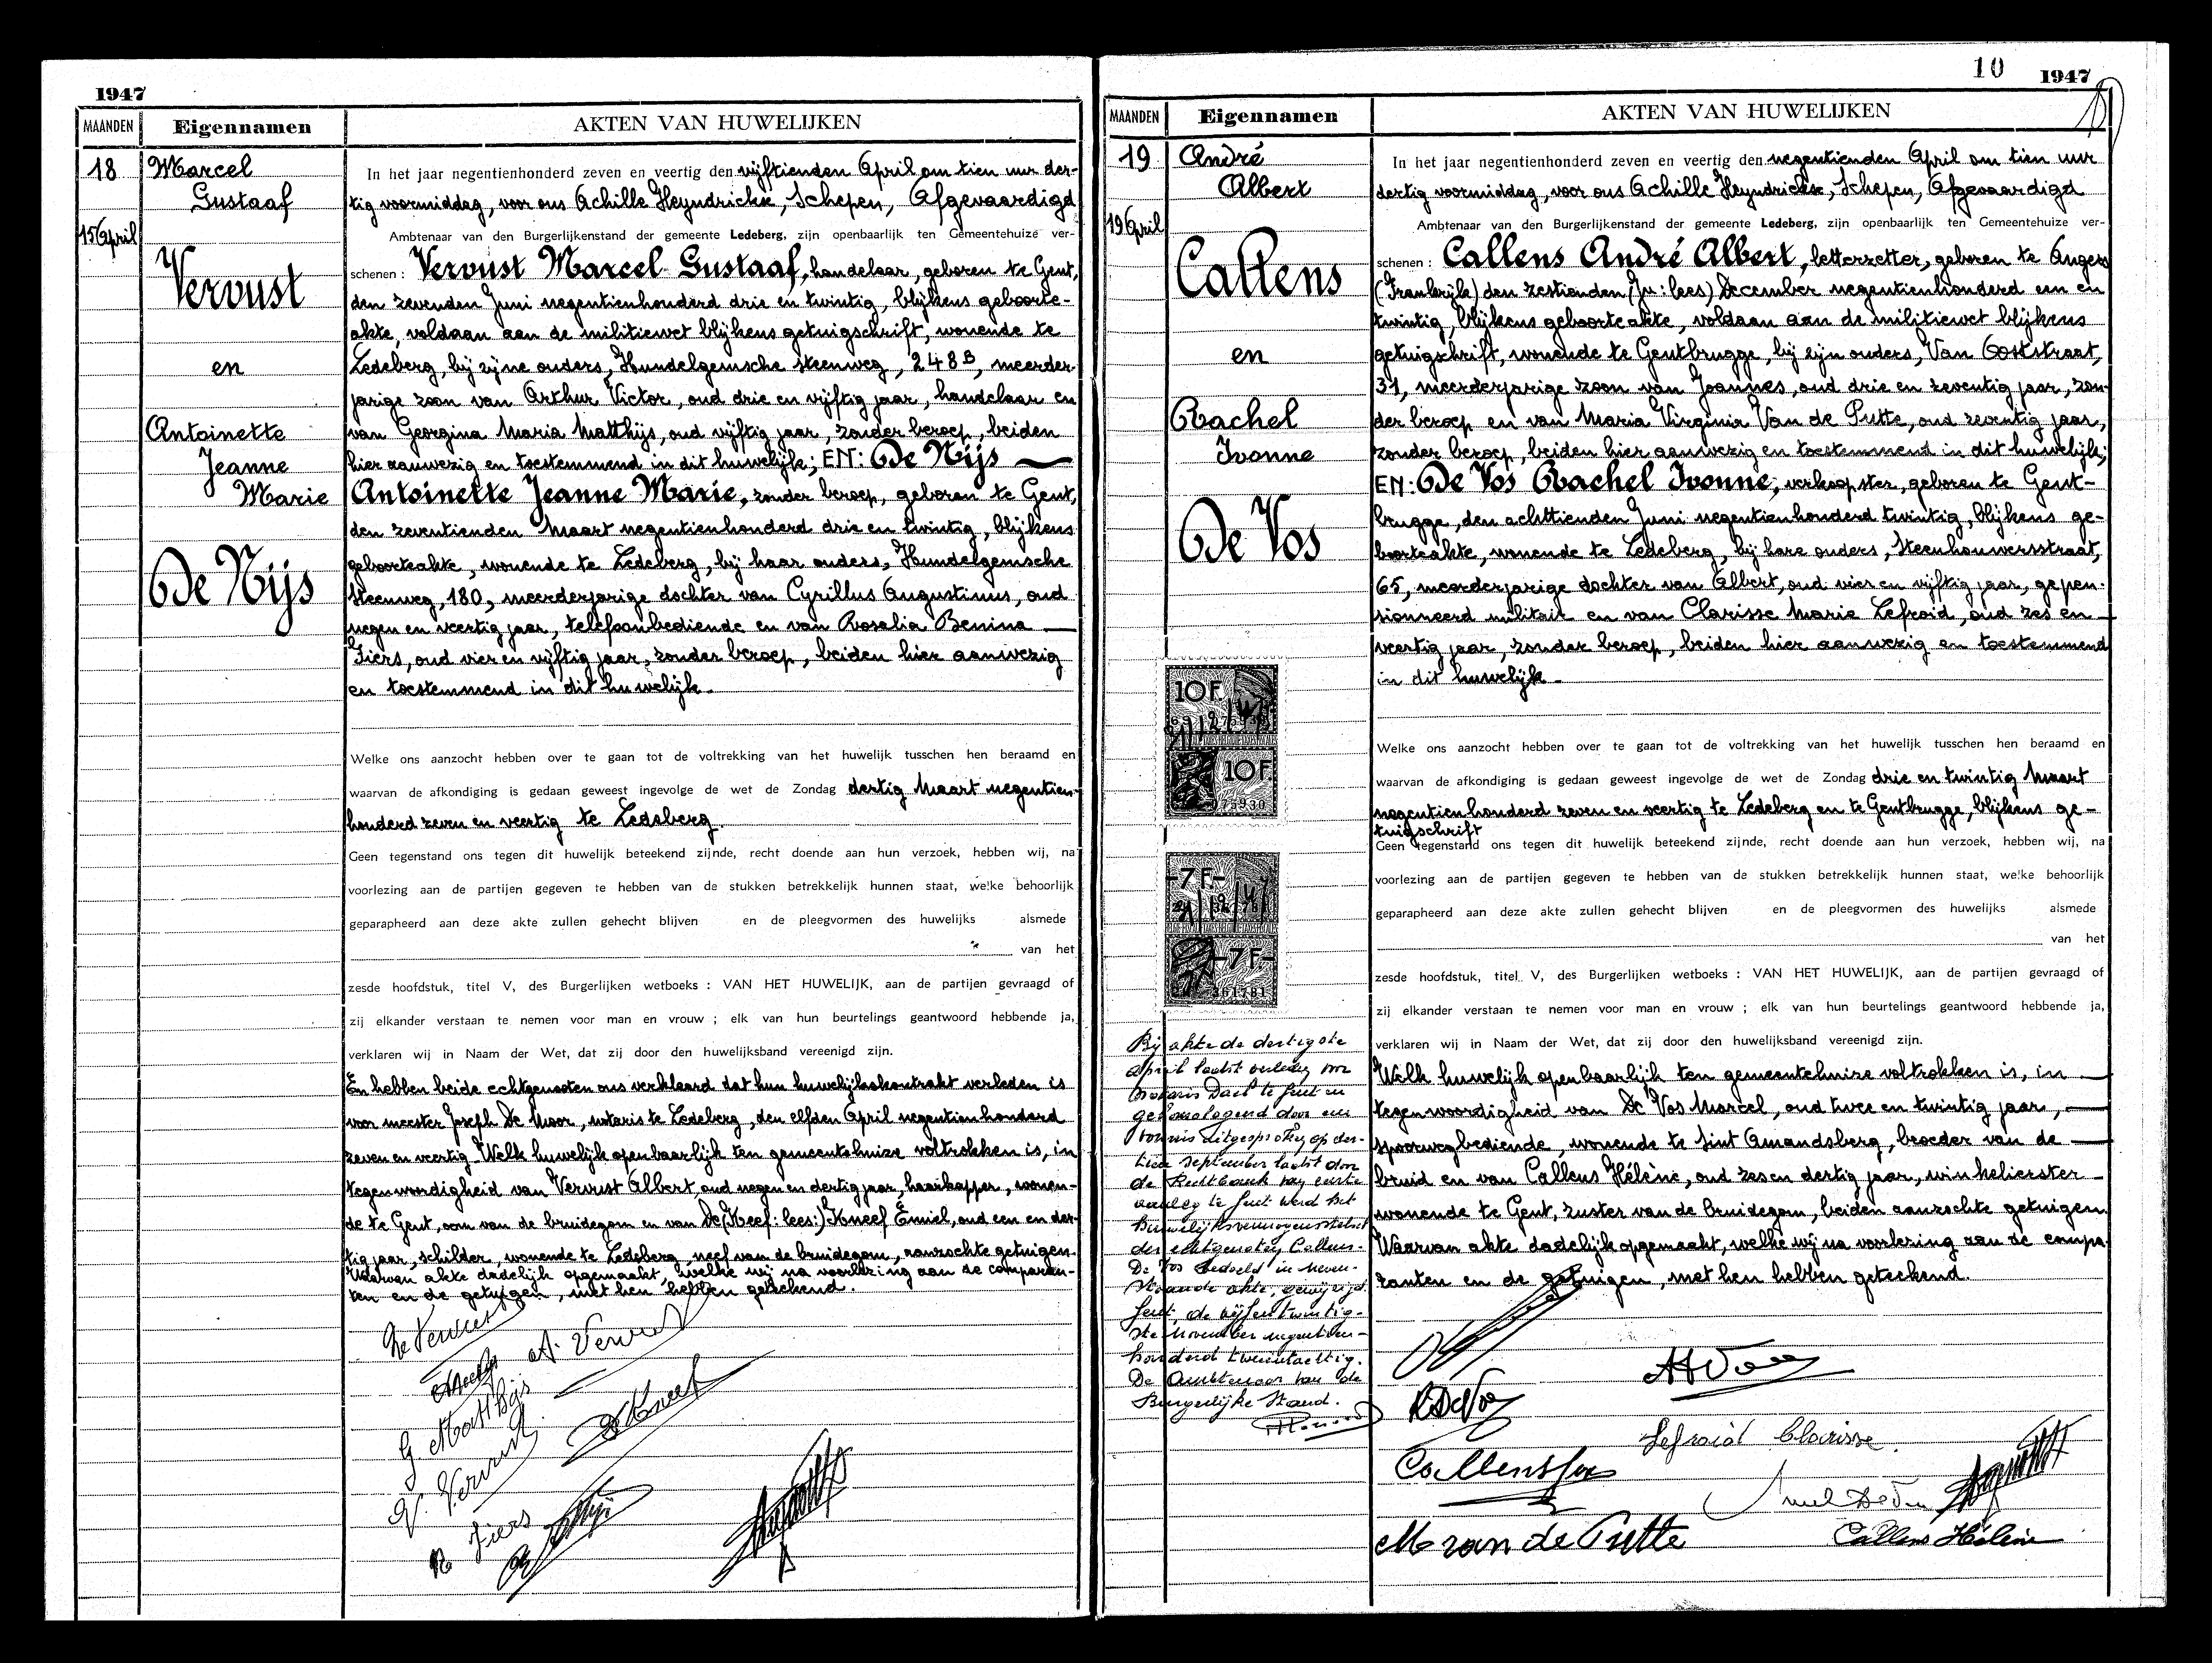 1947
MAANDEN
Eigennamen
AKTEN VAN HUWELIJKEN
18
15 April
Marcel
Gustaaf
Vervust
en
Antoinette
Jeanne
Marie
De Nijs
In het jaar negentienhonderd zeven en veertig den vijftienden April om tien uur der-
tig voormiddag, voor ons Achille Heyndrickx, Schepen, Afgevaardigd
Ambtenaar van den Burgerlijkenstand der gemeente Ledeberg, zijn openbaarlijk ten Gemeentehuize ver-
schenen : Vervust Marcel Gustaaf, handelaar, geboren te Gent,
den zevenden Juni negentienhonderd drie en twintig, blijkens geboorte-
akte, voldaan aan de militiewet blijkens getuigschrift, wonende te
Ledeberg, bij zijne ouders, Hundelgemsche steenweg, 248B, meerder-
jarige zoon van Arthur Victor, oud drie en vijftig jaar, handelaar en
van Georgina Maria Matthijs, oud vijftig jaar, zonder beroep, beiden
hier aanwezig en toestemmend in dit huwelijk; EN: De Nijs
Antoinette Jeanne Marie, zonder beroep, geboren te Gent,
den zeventienden Maart negentienhonderd drie en twintig, blijkens
geboorteakte, wonende te Ledeberg, bij haar ouders, Hundelgemsche
steenweg, 180, meerderjarige dochter van Cyrillus Augustinus, oud
negen en veertig jaar, telefoonbediende en van Rosalia Benina
Fiers, oud vier en vijftig jaar, zonder beroep, beiden hier aanwezig
en toestemmend in dit huwelijk.
Welke ons aanzocht hebben over te gaan tot de voltrekking van het huwelijk tusschen hen beraamd en
waarvan de afkondiging is gedaan geweest ingevolge de wet de Zondag dertig Maart negentien-
honderd zeven en veertig te Ledeberg.
Geen tegenstand ons tegen dit huwelijk beteekend zijnde, recht doende aan hun verzoek, hebben wij, na
voorlezing aan de partijen gegeven te hebben van de stukken betrekkelijk hunnen staat, welke behoorlijk
geparapheerd aan deze akte zullen gehecht blijven en de pleegvormen des huwelijks alsmede
van het
zesde hoofdstuk, titel V, des Burgerlijken wetboeks : VAN HET HUWELIJK, aan de partijen gevraagd of
zij elkander verstaan te nemen voor man en vrouw ; elk van hun beurtelings geantwoord hebbende ja,
verklaren wij in Naam der Wet, dat zij door den huwelijksband vereenigd zijn.
En hebben beide echtgenooten ons verklaard dat hun huwelijkskontrakt verleden is
voor meester Joseph De Moor, notaris te Ledeberg, den elfden April negentienhonderd
zeven en veertig. Welk huwelijk openbaarlijk ten gemeentehuize voltrokken is, in
tegenwoordigheid van Vervust Albert, oud negen en dertig jaar, haarkapper, wonen-
de te Gent, oom van de bruidegom en van De (Keef: lees:) Kneef Emiel, oud een en der-
tig jaar, schilder, wonende te Ledeberg, neef van de bruidegom, aanzochte getuigen.
Waarvan akte dadelijk opgemaakt, welke wij na voorlezing aan de comparan-
ten en de getuigen, met hen hebben geteekend.
A. Vervust
G. Matthijs
DeKneef
V. Vervust
R Fiers
10
1947
MAANDEN
Eigennamen
AKTEN VAN HUWELIJKEN
19
19 April
André
Albert
Callens
en
Rachel
Ivonne
De Vos
In het jaar negentienhonderd zeven en veertig den negentienden April om tien uur
dertig voormiddag, voor ons Achille Heyndrickx, Schepen, Afgevaardigd
Ambtenaar van den Burgerlijkenstand der gemeente Ledeberg, zijn openbaarlijk ten Gemeentehuize ver-
schenen : Callens André Albert, letterzetter, geboren te Angers
(Frankrijk) den zestienden (Ju: lees) December negentienhonderd een en
twintig, blijkens geboorteakte, voldaan aan de militiewet blijkens
getuigschrift, wonende te Gentbrugge, bij zijn ouders, Van Ooststraat,
31, meerderjarige zoon van Joannes, oud drie en zeventig jaar, zon-
der beroep en van Maria Virginia Van de Putte, oud zeventig jaar,
zonder beroep, beiden hier aanwezig en toestemmend in dit huwelijk;
EN: De Vos Rachel Ivonne, verkoopster, geboren te Gent-
brugge, den achttienden Juni negentienhonderd twintig, blijkens ge-
boorteakte, wonende te Ledeberg, bij hare ouders, Steenhouwersstraat,
65, meerderjarige dochter van Albert, oud vier en vijftig jaar, gepen-
sionneerd militair en van Clarisse Marie Lefroid, oud zes en
veertig jaar, zonder beroep, beiden hier aanwezig en toestemmend
in dit huwelijk.
10F
10F
075930
-7F-
-7F-
361781
Welke ons aanzocht hebben over te gaan tot de voltrekking van het huwelijk tusschen hen beraamd en
waarvan de afkondiging is gedaan geweest ingevolge de wet de Zondag drie en twintig Maart
negentienhonderd zeven en veertig te Ledeberg en te Gentbrugge, blijkens ge-
tuigschrift
Geen tegenstand ons tegen dit huwelijk beteekend zijnde, recht doende aan hun verzoek, hebben wij, na
voorlezing aan de partijen gegeven te hebben van de stukken betrekkelijk hunnen staat, welke behoorlijk
geparapheerd aan deze akte zullen gehecht blijven en de pleegvormen des huwelijks alsmede
van het
zesde hoofdstuk, titel V, des Burgerlijken wetboeks : VAN HET HUWELIJK, aan de partijen gevraagd of
zij elkander verstaan te nemen voor man en vrouw ; elk van hun beurtelings geantwoord hebbende ja,
verklaren wij in Naam der Wet, dat zij door den huwelijksband vereenigd zijn.
Welk huwelijk openbaarlijk ten gemeentehuize voltrokken is, in
tegenwoordigheid van De Vos Marcel, oud twee en twintig jaar,
spoorwegbediende, wonende te Sint Amandsberg, broeder van de
bruid en van Callens Hélène, oud zes en dertig jaar, winkelierster
wonende te Gent, zuster van de bruidegom, beiden aanzochte getuigen
Waarvan akte dadelijk opgemaakt, welke wij na voorlezing aan de compa-
ranten en de getuigen, met hen hebben geteekend.
Bij akte de dertigste
april laatst verleden voor
Notaris Dael te Gent en
gehomologeerd door een
vonnis uitgesproken op der-
tien september laatst door
de Rechtbank van eerste
aanleg te Gent werd het
huwelijksvermogensstelsel
der echtgenoten Callens-
De Vos bedoeld in neven-
staande akte, gewijzigd.
Gent, de vijfentwintig-
ste november negentien-
honderd tweeëntachtig.
De Ambtenaar van de
Burgerlijke Stand.
RDeVos
Lefroid Clarisse.
M van de Putte
Callens Hélène